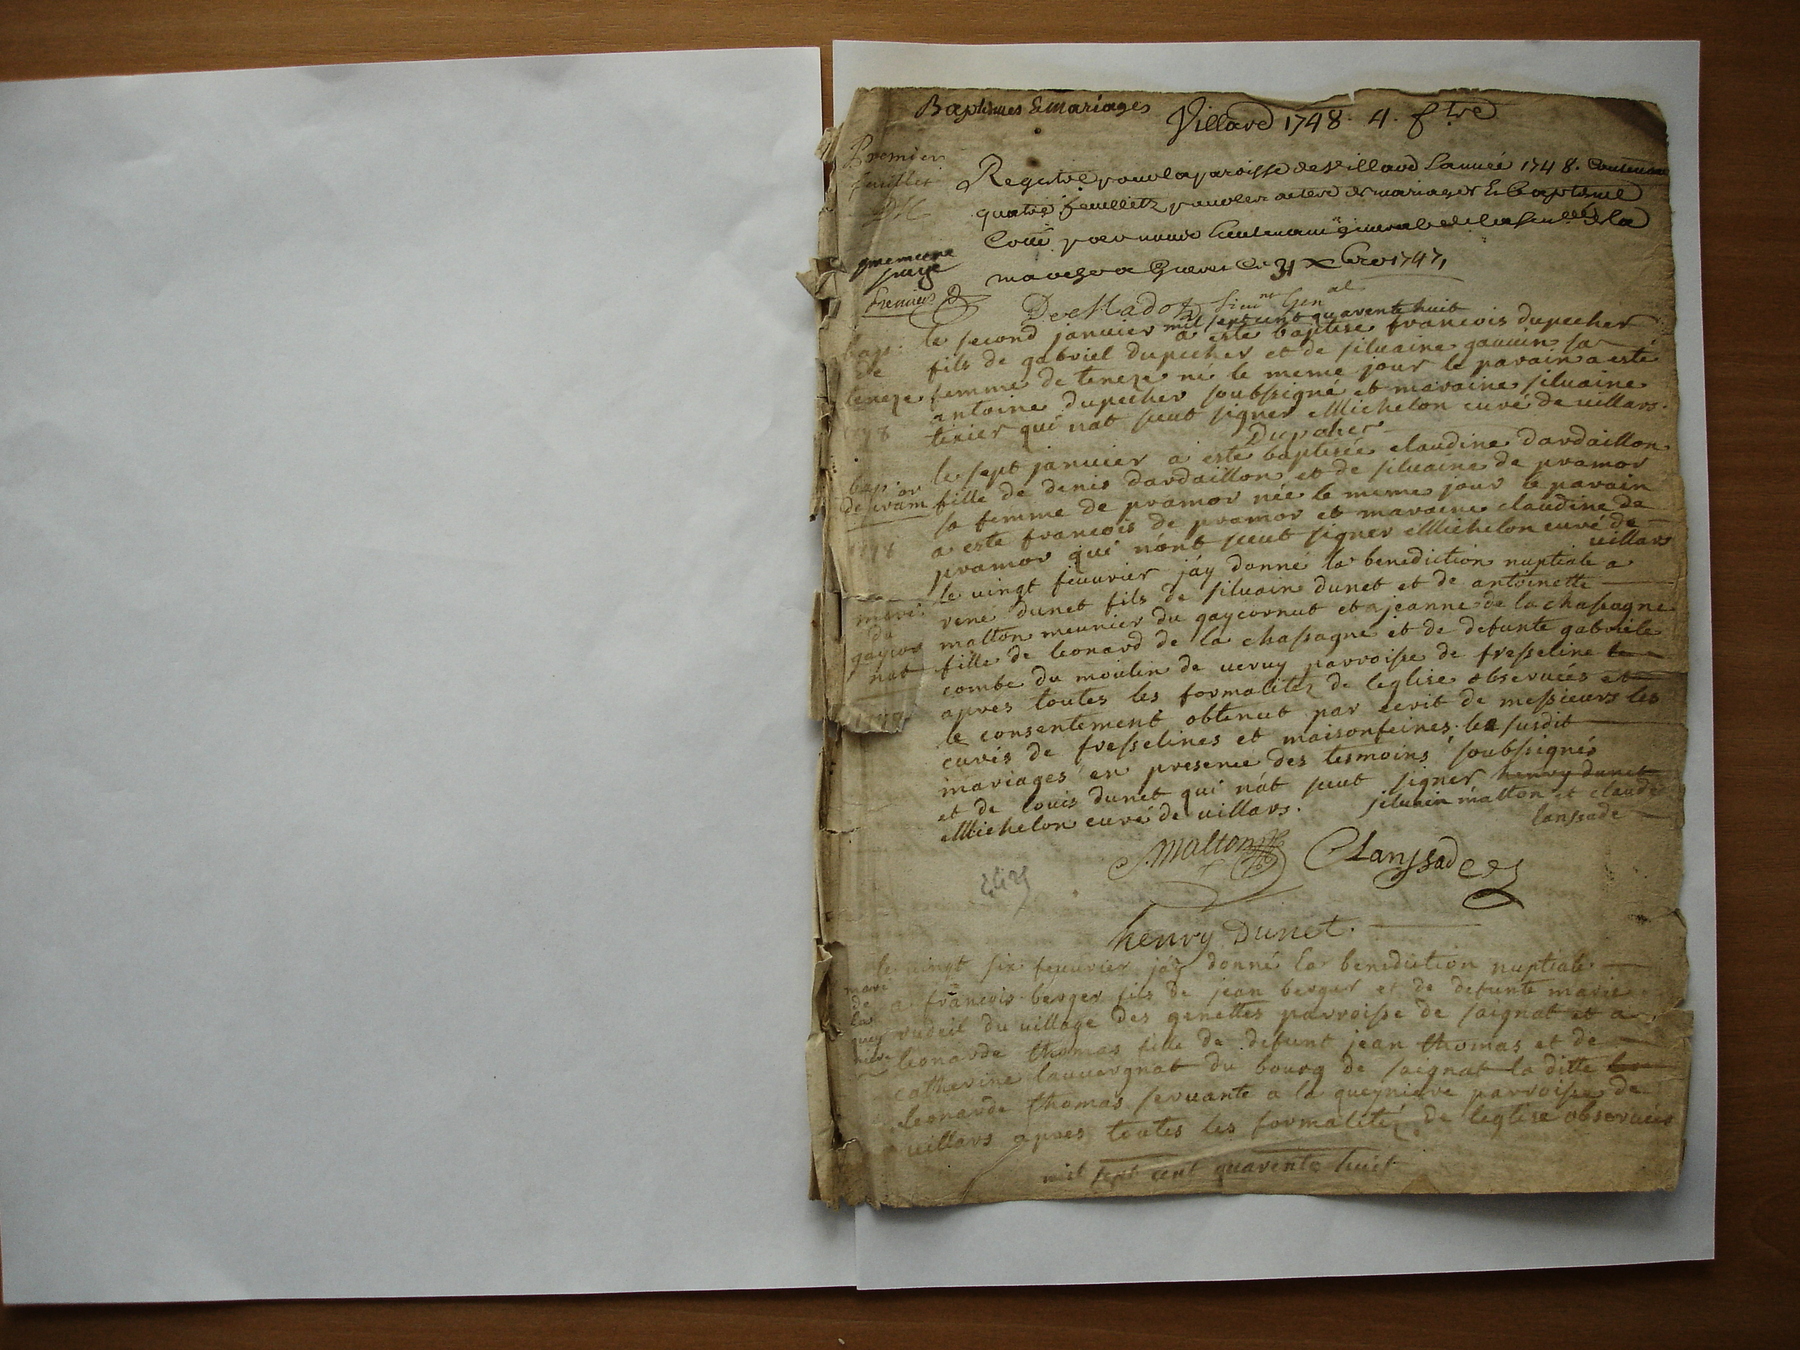 Baptemes & mariages
Villard 1748. 4. f.tre
Premier
feuillet
Registre pour la paroisse de Villard Lannée 1748. Contenant
quatre feuilletz pour les actes de mariages & Bapteme
Cotté par nous Lieutenant general de la Senéé de la
marche a Gueret Ce 31 Xbre 1747
premiere
page
premier
De Madot Lieunt Genal
mil sept cent quarente huit
le second janvier a esté baptise francois dupecher
bap.
de
teneze
1748
fils de gabriel dupecher et de siluaine gauuin sa
femme de teneze né le meme jour le parain a esté
antoine dupecher soubsigné et maraine siluaine
tixier qui nat sceut signer Michelon curé de villars.
Dupecher
le sept janvier a esté baptisée claudine dardaillon
bap. or
de pram
1748
fille de denis dardaillon et de siluaine de pramor
sa femme de pramor née le meme jour le parain
a este francois de pramor et maraine claudine de
pramor qui nont sceut signer Michelon curé de
villars
le vingt feuurier jay donné la benediction nuptiale a
mari.
du
gaycor
nat
1748
rené dunet fils de siluain dunet et de antoinette
malton meunier du gaycornut et a jeanne de la chassagne
fille de leonard de la chassagne et de defunte gabriele
combe du moulin de vervy parroisse de fresseline le
apres toutes les formalitez de leglise obseruées et
le consentement obtenut par ecrit de messieurs les
curés de fresselines et maisonfeines. le susdit
mariages en presence des tesmoins soubsignés
et de louis dunet qui nat sceut signer henry dunet
siluain malton et claude
lanssade
Michelon curé de villars.
S. malton
C Lanssade
henry Dunet.
le vingt six feuurier jay donné la benediction nuptiale
mari
de
la
quey
niere
a francois berger fils de jean berger et de defunte marie
rudeil du village des genettes parroisse de saignat et a
leonarde thomas fille de defunt jean thomas et de
catherine lauuergnat du bourg de saignat la ditte
leonarde thomas seruante a la queyniere parroisse de
villars apres toutes les formalitéz de leglise obseruées
mil sept cent quarente huit